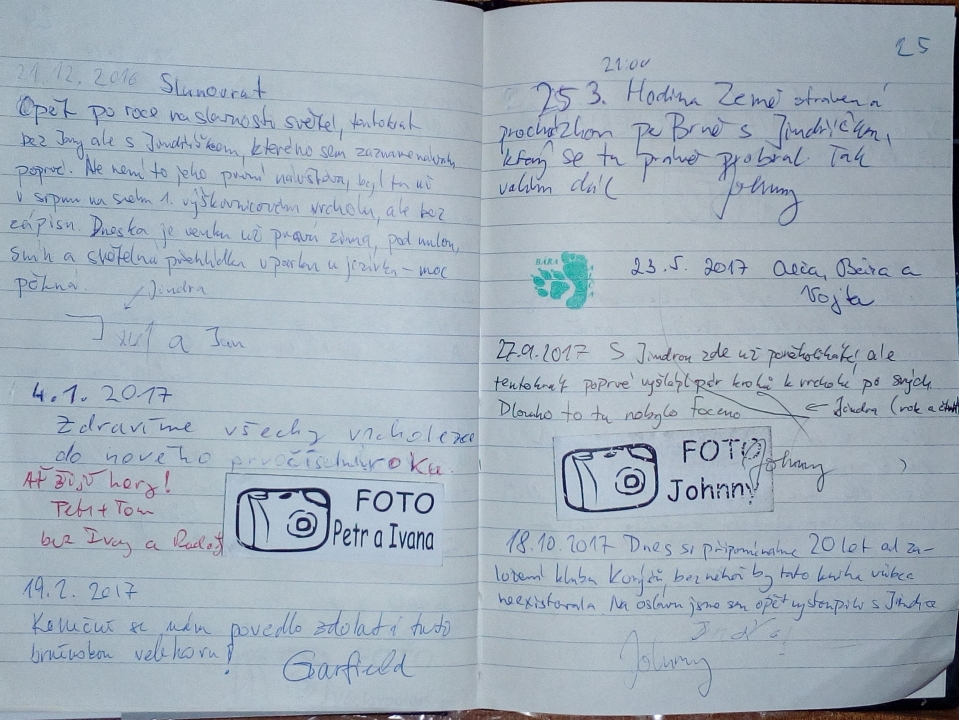 21.12.2016 Slunovrat
Opět po roce na slavnosti světel, tentokrát
bez Jany ale s Jindříškem, kterého sem zaznamenávám
poprvé. Ne není to jeho první návštěva, byl tu už
v srpnu na svém 1. výškovnicovém vrcholu, ale bez
zápisu. Dneska je venku už pravá zima, pod nulou,
sníh a světelná přehlídka v parku u jezírka - moc
pěkná.
Jindra
a Jan
4.1.2017
Zdravíme všechy vrcholezce
do nového prvočíselného roku.
Ať žijí hory!
Petr + Tom
bez Ivay a Radoš
FOTO
Petr a Ivana
19.2.2017
Konečně se nám povedlo zdolat i tuto
brněnskou velehoru!
Garfield
25
21:00
25 3. Hodina Země strávená
procházkou po Brně s Jindříškem,
který se tu právě probral. Tak
valím dál
Johnny
BÁRA
23.5. 2017 Alča, Bára a
Vojta
27.9.2017 S Jindrou zde už poněkolikáté, ale
tentokrát poprvé vyšlápl pár kroků k vrcholu po svých.
Dlouho to tu nebylo foceno
← Jindra (rok a čtvrt)
FOTO
Johnny
Johnny
18.10.2017 Dnes si připomínáme 20 let od za-
ložení klubu Konfiů, bez něhož by tato kniha vůbec
neexistovala. Na oslavu jsme sem opět vystoupili s Jindrou
Johnny